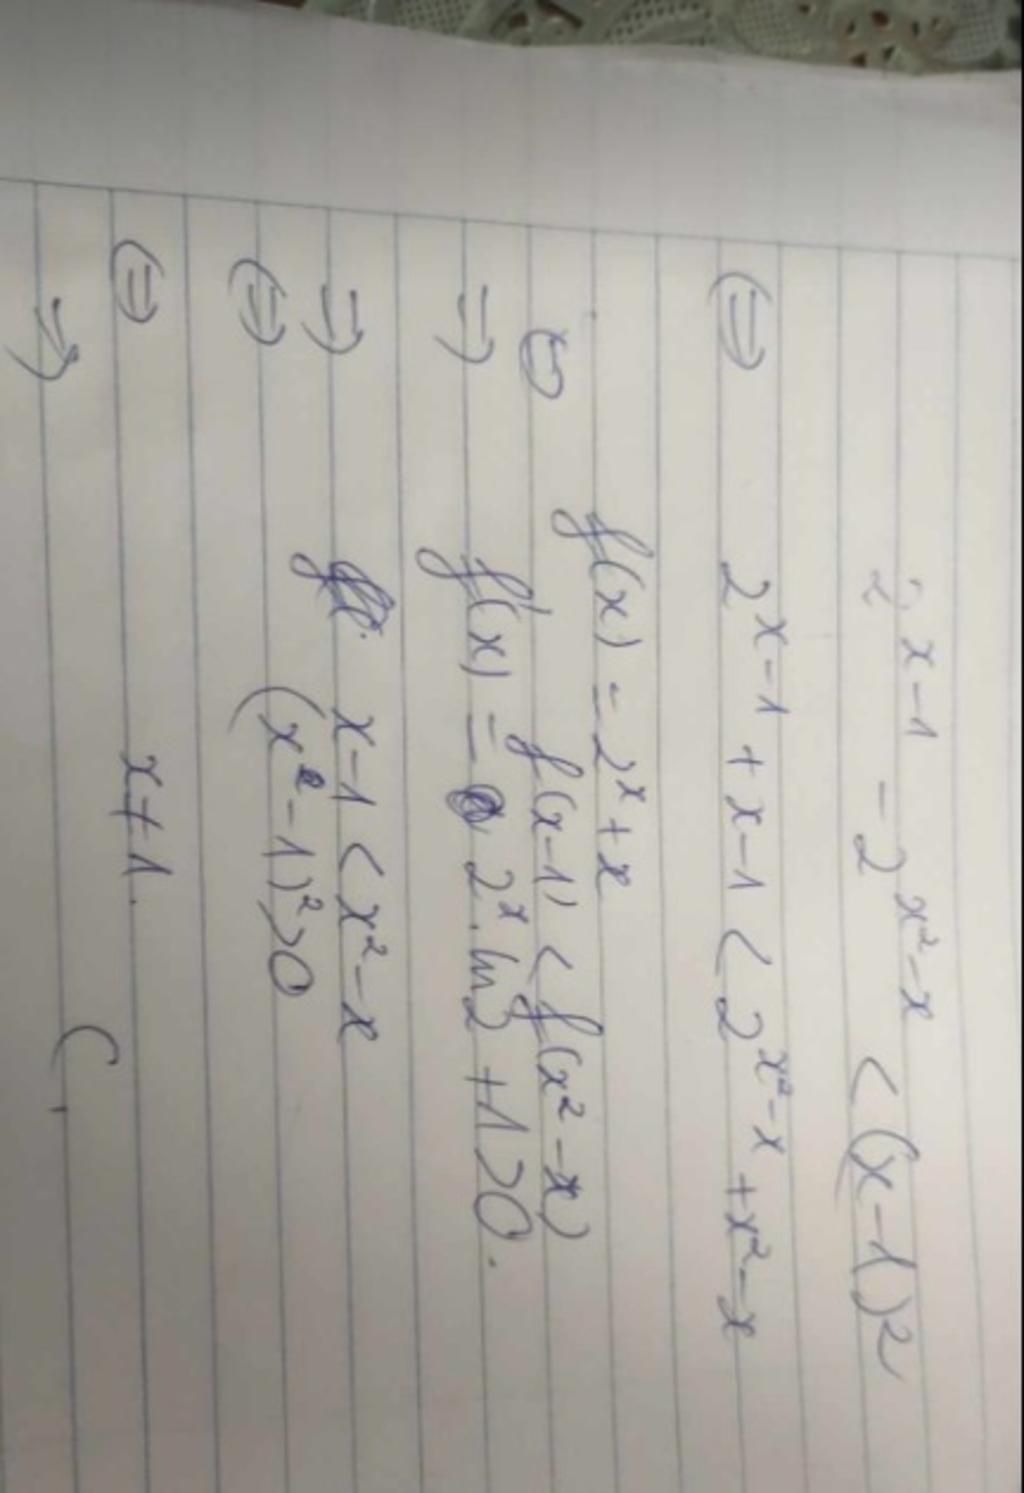 2^{x-1} - 2^{x²-x} < (x-1)²
⇔ 2^{x-1} + x-1 < 2^{x²-x} + x²-x
f(x) = 2^x + x
⇔ f(x-1) < f(x²-x)
⇒ f'(x) = 2^x.ln2 + 1 > 0.
⇒ x-1 < x²-x
⇔ (x-1)² > 0
⇔ x≠1.
→ C